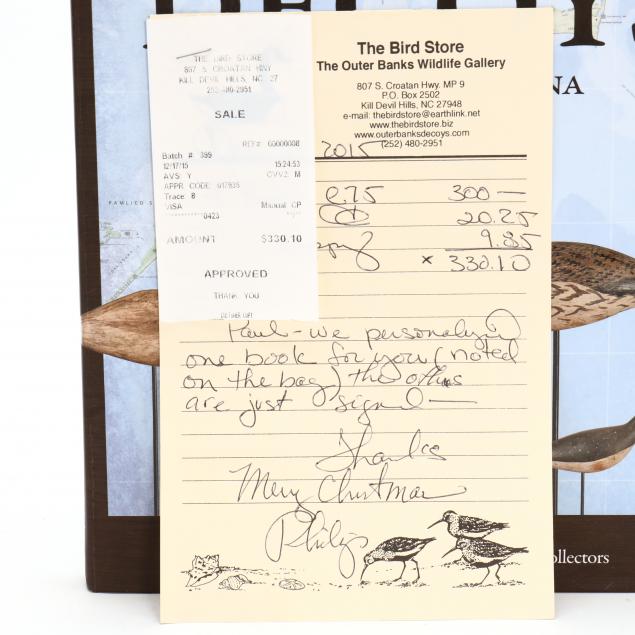 DECOYS
NA
ollectors
THE BIRD STORE
807 S CROATAN HWY
KILL DEVIL HILLS, NC 27
252-480-2951
SALE
REF# 00000008
Batch # 399
12/17/15 15:24:53
AVS: Y CVV2: M
APPR CODE: 017835
Trace: 8
VISA Manual CP
0423
AMOUNT $330.10
APPROVED
THANK YOU
The Bird Store
The Outer Banks Wildlife Gallery
807 S. Croatan Hwy. MP 9
P.O. Box 2502
Kill Devil Hills, NC 27948
e-mail: thebirdstore@earthlink.net
www.thebirdstore.biz
www.outerbanksdecoys.com
(252) 480-2951
2015
@.75 300 —
20.25
9.85
x 330.10
Paul - we personalized
one book for you (noted
on the bag) the others
are just signed —
Thanks
Merry Christmas